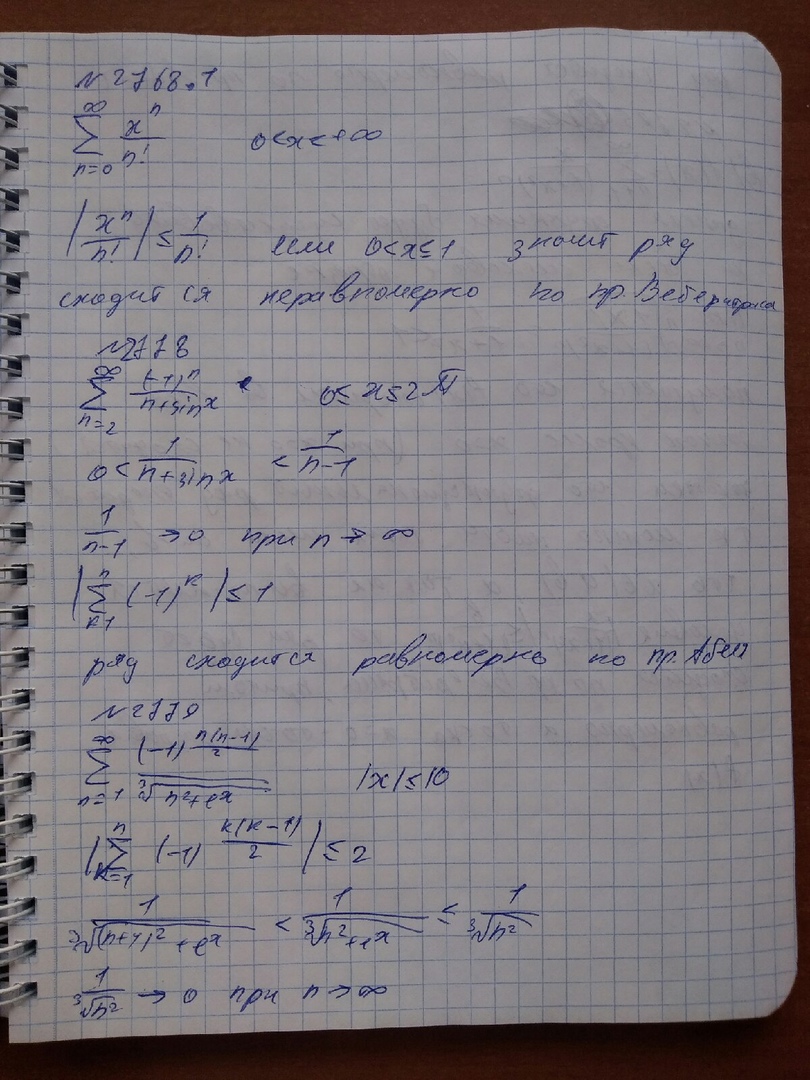 № 2768.1
∑_{n=0}^{∞} x^n/n!   0<x<+∞
|x^n/n!| ≤ 1/n!   если 0<x≤1 значит ряд
сходится неравномерно по пр. Вебершраса
№2778
∑_{n=2}^{∞} (-1)^n/(n+sin x)   0≤x≤2π
0 < 1/(n+sin x) < 1/(n-1)
1/(n-1) → 0 при n → ∞
|∑_{k=1}^{n} (-1)^k| ≤ 1
ряд сходится равномерно по пр. Абеля
№2779
∑_{n=1}^{∞} (-1)^{n(n-1)/2}/∛(n²+e^x)   |x|≤10
|∑_{k=1}^{n} (-1)^{k(k-1)/2}| ≤ 2
1/∛((n+1)²+e^x) < 1/∛(n²+e^x) ≤ 1/∛(n²)
1/∛(n²) → 0 при n → ∞